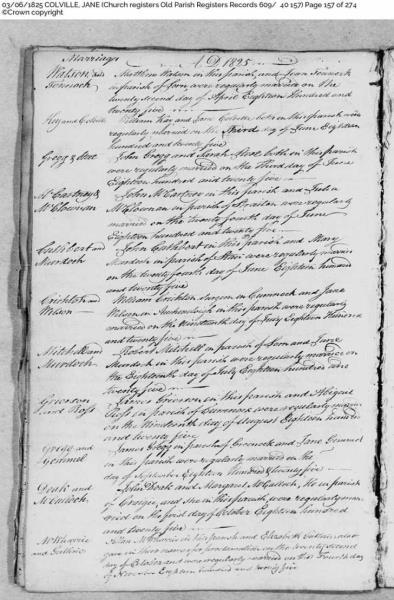 03/06/1825 COLVILLE, JANE (Church registers Old Parish Registers Records 609/ 40 157) Page 157 of 274
©Crown copyright
Marriages A D 1825
Watson and Matthew Watson in this parish and Jean
in parish of Sorn were regularly married on the
twenty second day of April Eighteen Hundred and
twenty five
Kay and Colvill William Kay and Jane Colvill both in this parish were
regularly married on the Third day of June Eighteen
hundred and twenty five
Gregg & John Gregg and Sarah both in this parish
were regularly married on the Third day of June
Eighteen hundred and twenty five
McCartney & John McCartney in this parish and
McClownan McClownan in parish of Straiton were regularly
married on the twenty fourth day of June
Eighteen hundred and twenty five
Cuthbert and John Cuthbert in this parish and Mary
Murdoch Murdoch in parish of Stair were regularly married
on the twenty fourth day of June Eighteen hundred
and twenty five
Crichton and William Crichton in Cumnock and Jane
Wilson Wilson in Auchinleck in this parish were regularly
married on the Nineteenth day of July Eighteen Hundred
and twenty five
Mitchell and Robert Mitchell in parish of Sorn and Jane
Murdoch Murdoch in this parish were regularly married on
the Eighteenth day of July Eighteen hundred and
twenty five
Grierson James Grierson in this parish and Abigail
and Ross Ross in parish of Cumnock were regularly married
on the Nineteenth day of August Eighteen hundred
and twenty five
Gregg and James Gregg in parish of and Jane Gemmel
Gemmel in this parish were regularly married on the
day of September Eighteen Hundred & twenty five
Doak and John Doak and Margaret McCulloch, He in parish
McCulloch of Craigie, and she in this parish, were regularly mar
ried on the first day of October Eighteen hundred
and twenty five
McWhirrie Allan McWhirrie in this parish and Elizabeth Guthrie, also
and Guthrie gave in their names for proclamation on the twenty second
day of October and were regularly married on the Fourth day
of November Eighteen hundred and twenty five